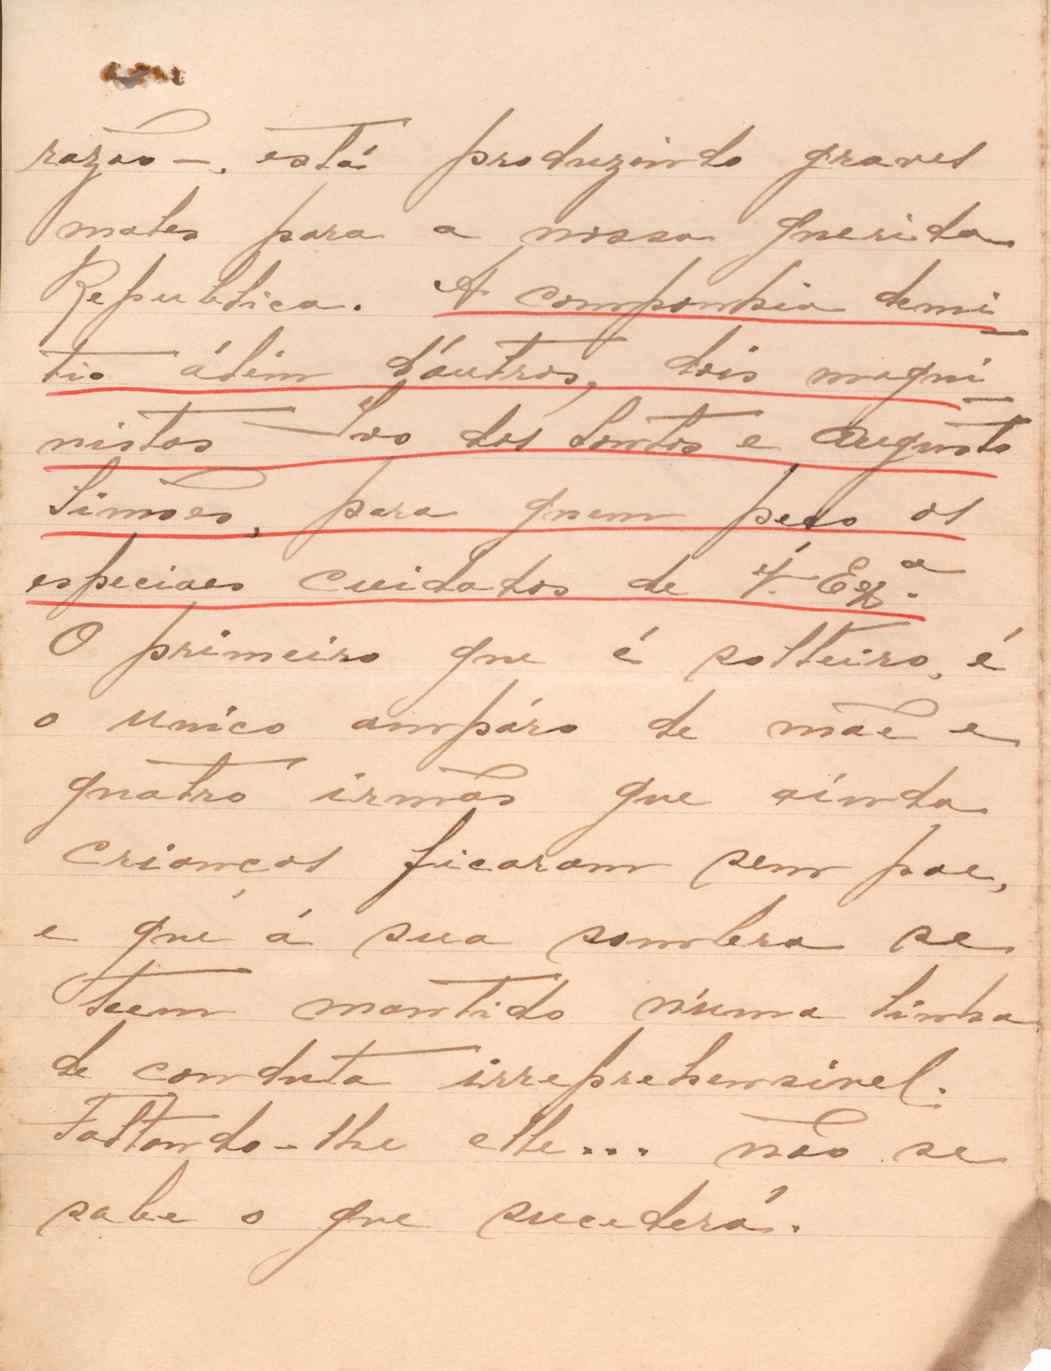 razão –, está produzindo graves
males para a nossa querida
Republica. A companhia demi
tio álém d'áutros, dois maqui
nistas – Ivo dos Santos e Augusto
Simões, para quem peço os
especiaes cuidados de V. Exª.
O primeiro que é solteiro, é
o unico ampáro de mãe e
quatro irmãos que ainda
crianças ficaram sem pae,
e que á sua sombra se
teem mantido n'uma linha
de conduta irreprehensivel.
Faltando-lhe elle... não se
sabe o que sucederá.